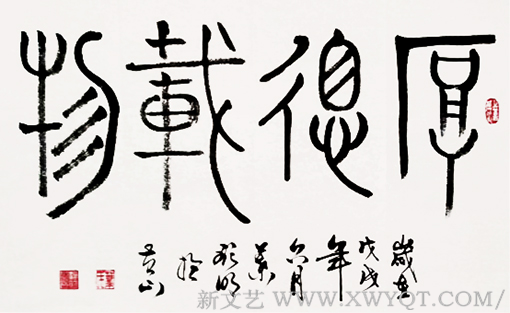 厚德載物
歲在
戊戌
年
六月
於
新文艺 WWW.XWYQT.COM/